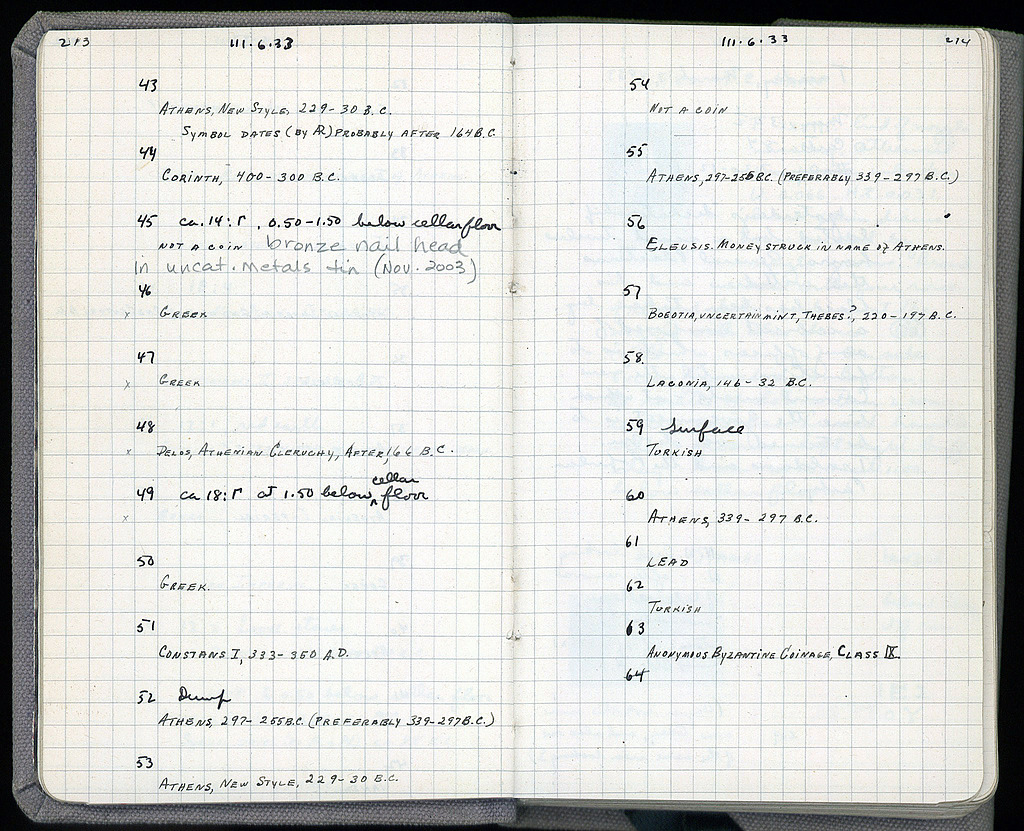 213
111.6.33
43
ATHENS, NEW STYLE, 229-30 B.C.
SYMBOL DATES (BY AR) PROBABLY AFTER 164 B.C.
44
CORINTH, 400-300 B.C.
45 ca. 14:Γ, 0.50-1.50 below cellar floor
NOT A COIN bronze nail head
in uncat. metals tin (Nov. 2003)
46
x GREEK
47
x GREEK
48
x DELOS, ATHENIAN CLERUCHY, AFTER 166 B.C.
49 ca 18:Γ at 1.50 below cellar floor
x
50
GREEK.
51
CONSTANS I, 333-350 A.D.
52 Dump
ATHENS, 297-255 B.C. (PREFERABLY 339-297 B.C.)
53
ATHENS, NEW STYLE, 229-30 B.C.
111.6.33
214
54
NOT A COIN
55
ATHENS, 297-255 B.C. (PREFERABLY 339-297 B.C.)
56
ELEUSIS. MONEY STRUCK IN NAME OF ATHENS.
57
BOEOTIA, UNCERTAIN MINT, THEBES?, 220-197 B.C.
58
LACONIA, 146-32 B.C.
59 Surface
TURKISH
60
ATHENS, 339-297 B.C.
61
LEAD
62
TURKISH
63
ANONYMOUS BYZANTINE COINAGE, CLASS IX
64